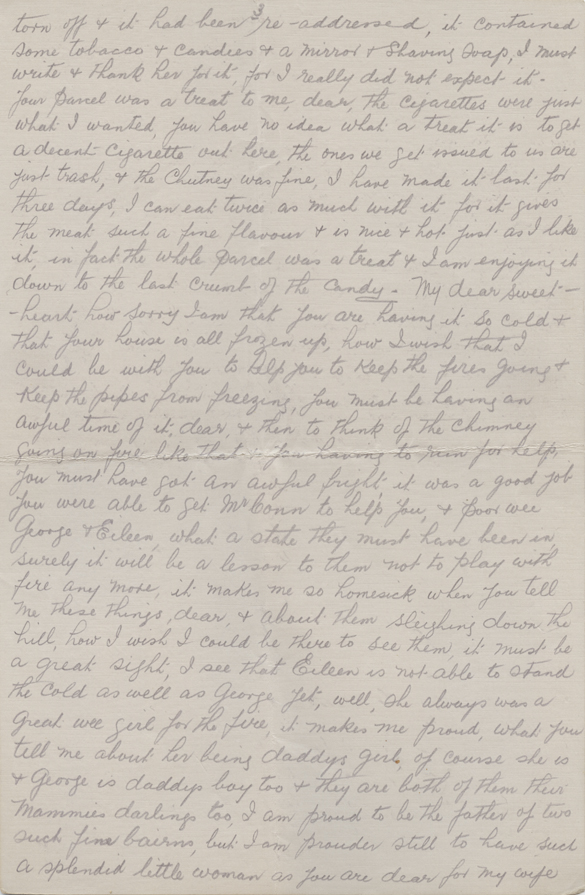 3
torn off & it had been re-addressed, it contained
some tobacco & candies & a mirror & shaving soap, I must
write & thank her for it, for I really did not expect it.
Your parcel was a treat to me, dear, the cigarettes were just
what I wanted, you have no idea what a treat it is to get
a decent cigarette out here, the ones we get issued to us are
just trash, & the Chutney was fine, I have made it last for
three days, I can eat twice as much with it for it gives
the meat such a fine flavour & is nice & hot just as I like
it, in fact the whole parcel was a treat & I am enjoying it
down to the last crumb of the candy. My dear sweet-
-heart how sorry I am that you are having it so cold &
that your house is all frozen up, how I wish that I
could be with you to help you to keep the fires going &
keep the pipes from freezing, you must be having an
awful time of it, dear, & then to think of the chimney
going on fire like that & you having to run for help,
you must have got an awful fright, it was a good job
you were able to get Mr Conn to help you, & poor wee
George & Eileen, what a state they must have been in
surely it will be a lesson to them not to play with
fire any more, it makes me so homesick when you tell
me these things, dear, & about them sleighing down the
hill, how I wish I could be there to see them, it must be
a great sight, I see that Eileen is not able to stand
the cold as well as George yet, well, she always was a
great wee girl for the fire, it makes me proud, what you
tell me about her being daddys girl, of course she is
& George is daddys boy too & they are both of them their
Mammies darlings too, I am proud to be the father of two
such fine bairns, but I am prouder still to have such
a splendid little woman as you are dear for my wife